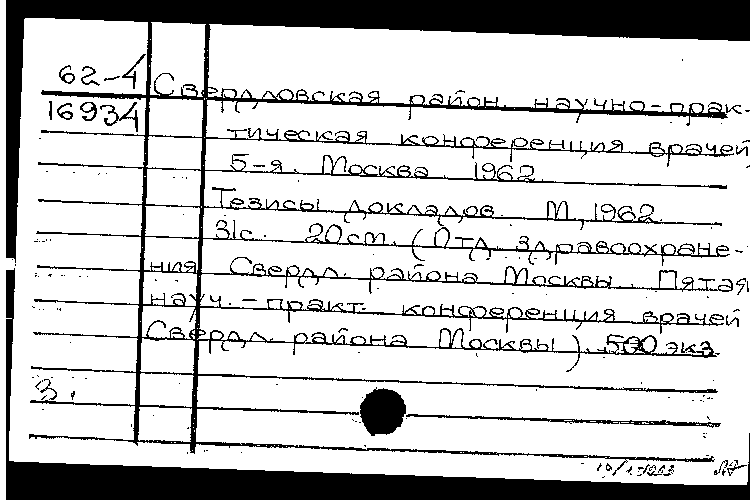 62-4 Свердловская район. научно-прак-
16934
тическая конференция врачей
5-я. Москва. 1962
Тезисы докладов. М., 1962.
31с. 20см. (Отд. здравоохране-
ния Свердл. района Москвы. Пятая
науч.-практ. конференция врачей
Свердл. района Москвы). 500 экз
3.